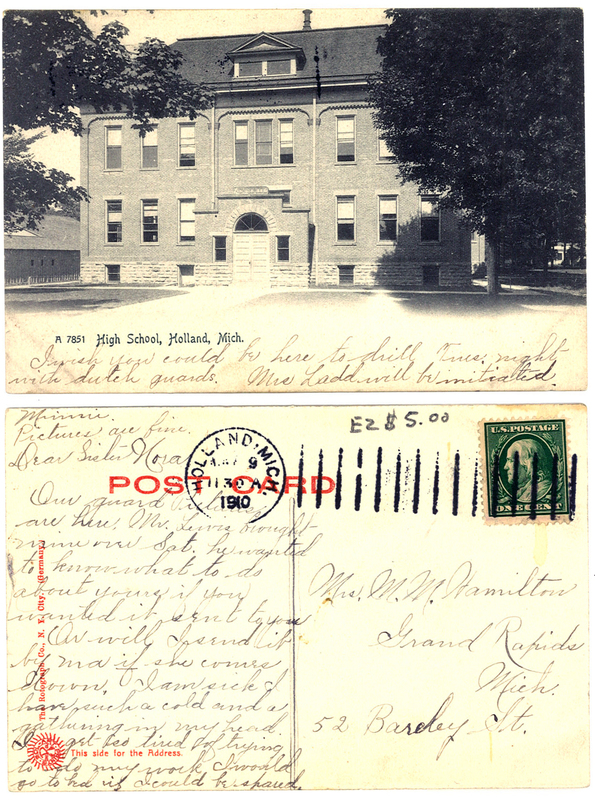 A 7851 High School, Holland, Mich.
I wish you could be here to drill Tues. night
with dutch guards. Mrs Ladd will be initiated.
Minnie
Pictures are fine.
Dear Sister Nora
EZ $5.00
U.S. POSTAGE
ONE CENT
HOLLAND, MICH.
9
1130 A
1910
POST CARD
Our guard pictures
are here. Mr. Lewis brought
mine over Sat. he wanted
to know what to do
about yours if you
wanted it sent to you
Or will I send it
by ma if she comes
down. I am sick I
have such a cold and a
gathering in my head.
I get too tired for trying
to do my work I would
go to ma if I could be spared.
Mrs. M. M. Hamilton
Grand Rapids
Mich.
52 Barcley St.
The Rotograph Co., N. Y. City. (Germany)
This side for the Address.